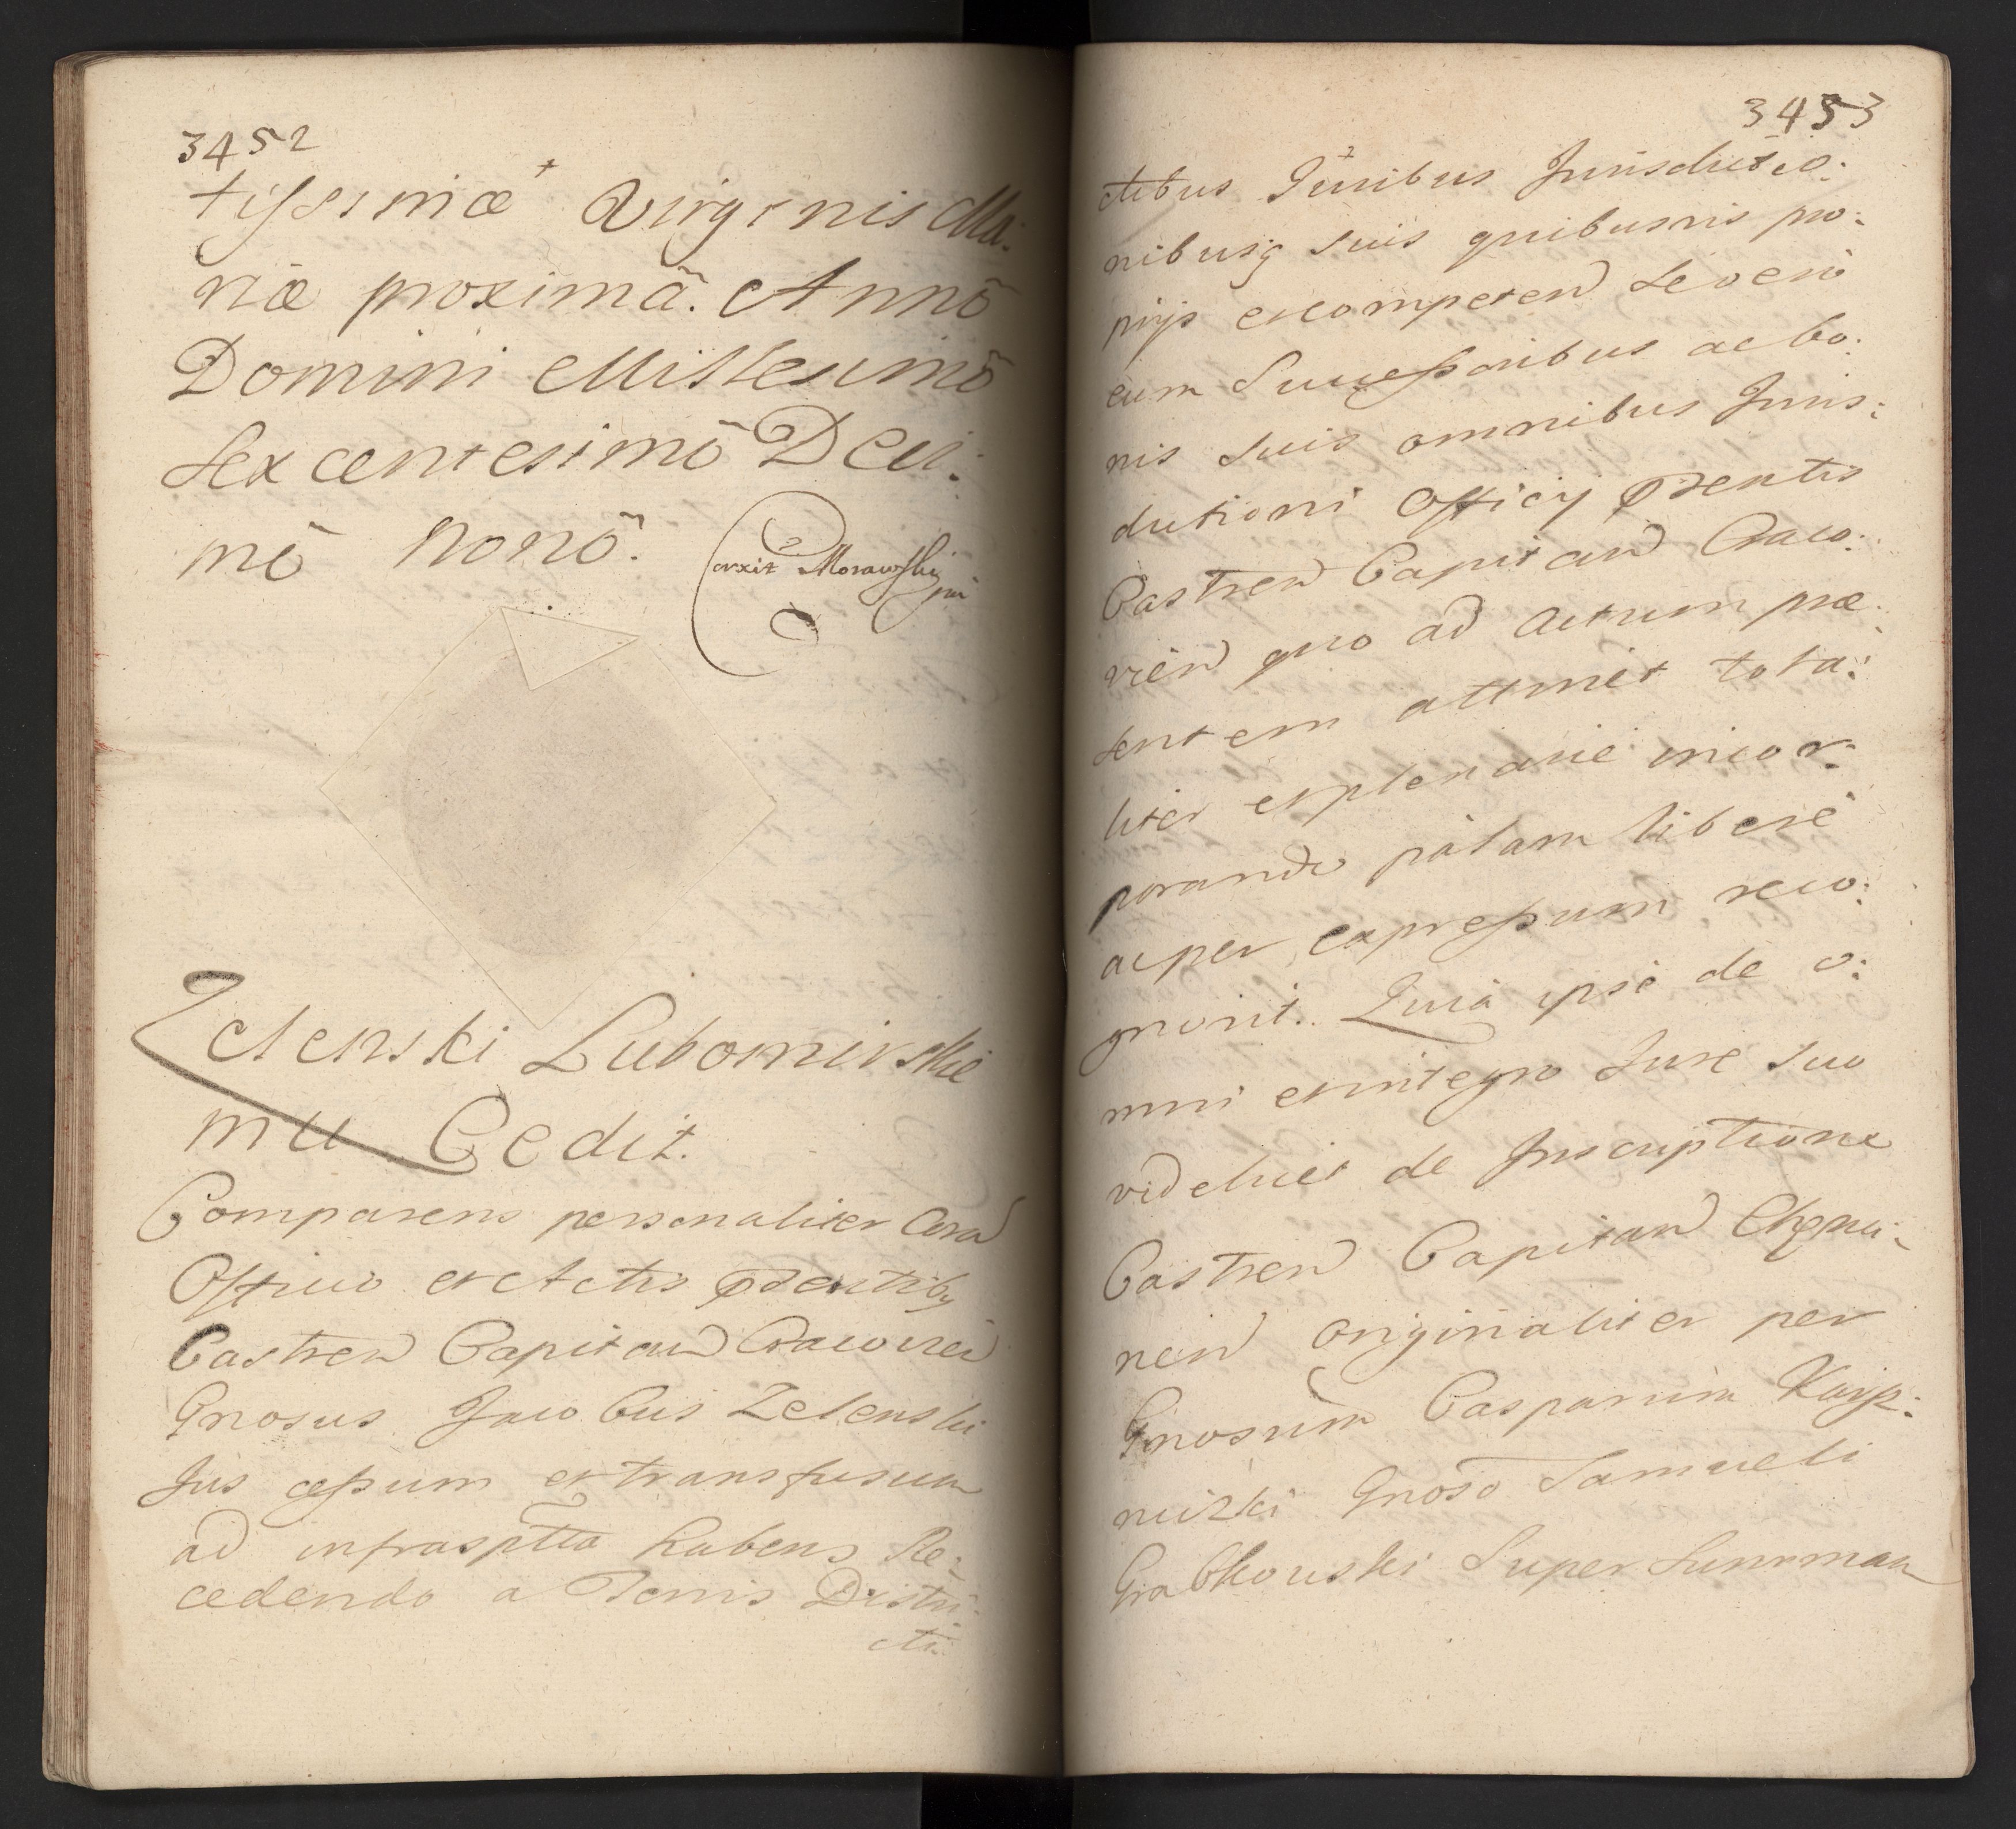 3452
tissimæ Virginis Ma:
riæ proximã. Annõ
Domini Millesimõ
Sexcentesimõ Deci:
mõ nonõ.
Corxit Morawski
mp
Zelenski Lubomirskie
mu Cedit.
Comparens personaliter Cora
Officio et Actis Pdentibq
Castren Capitan Cracovien
Gnosus Jacobus Zelenski
Jus cessum et transfusum
ad infrasptta habens Re:
cedendo a Terris Distri:
cti
3453
ctibus Juribus Jurisdictio:
nibusq suis quibusvis pro:
prijs et competen se vero
cum Successoribus ac bo:
nis suis omnibus Juris:
dictioni Officij Pdentis
Castren Capitan Craco:
vien quo ad Actum præ:
sentem attinet tota:
liter et plenarie incor:
porando pàlam liberè
ac per expressum reco:
gnovit. Quià ipse de o:
mni et integro Jure suo
videlicet de Inscriptione
Castren Capitan Chęnci:
nen originaliter per
Gnosum Casparum Karp:
nicki Gnoso Samueli
Grabkowski Super Summam